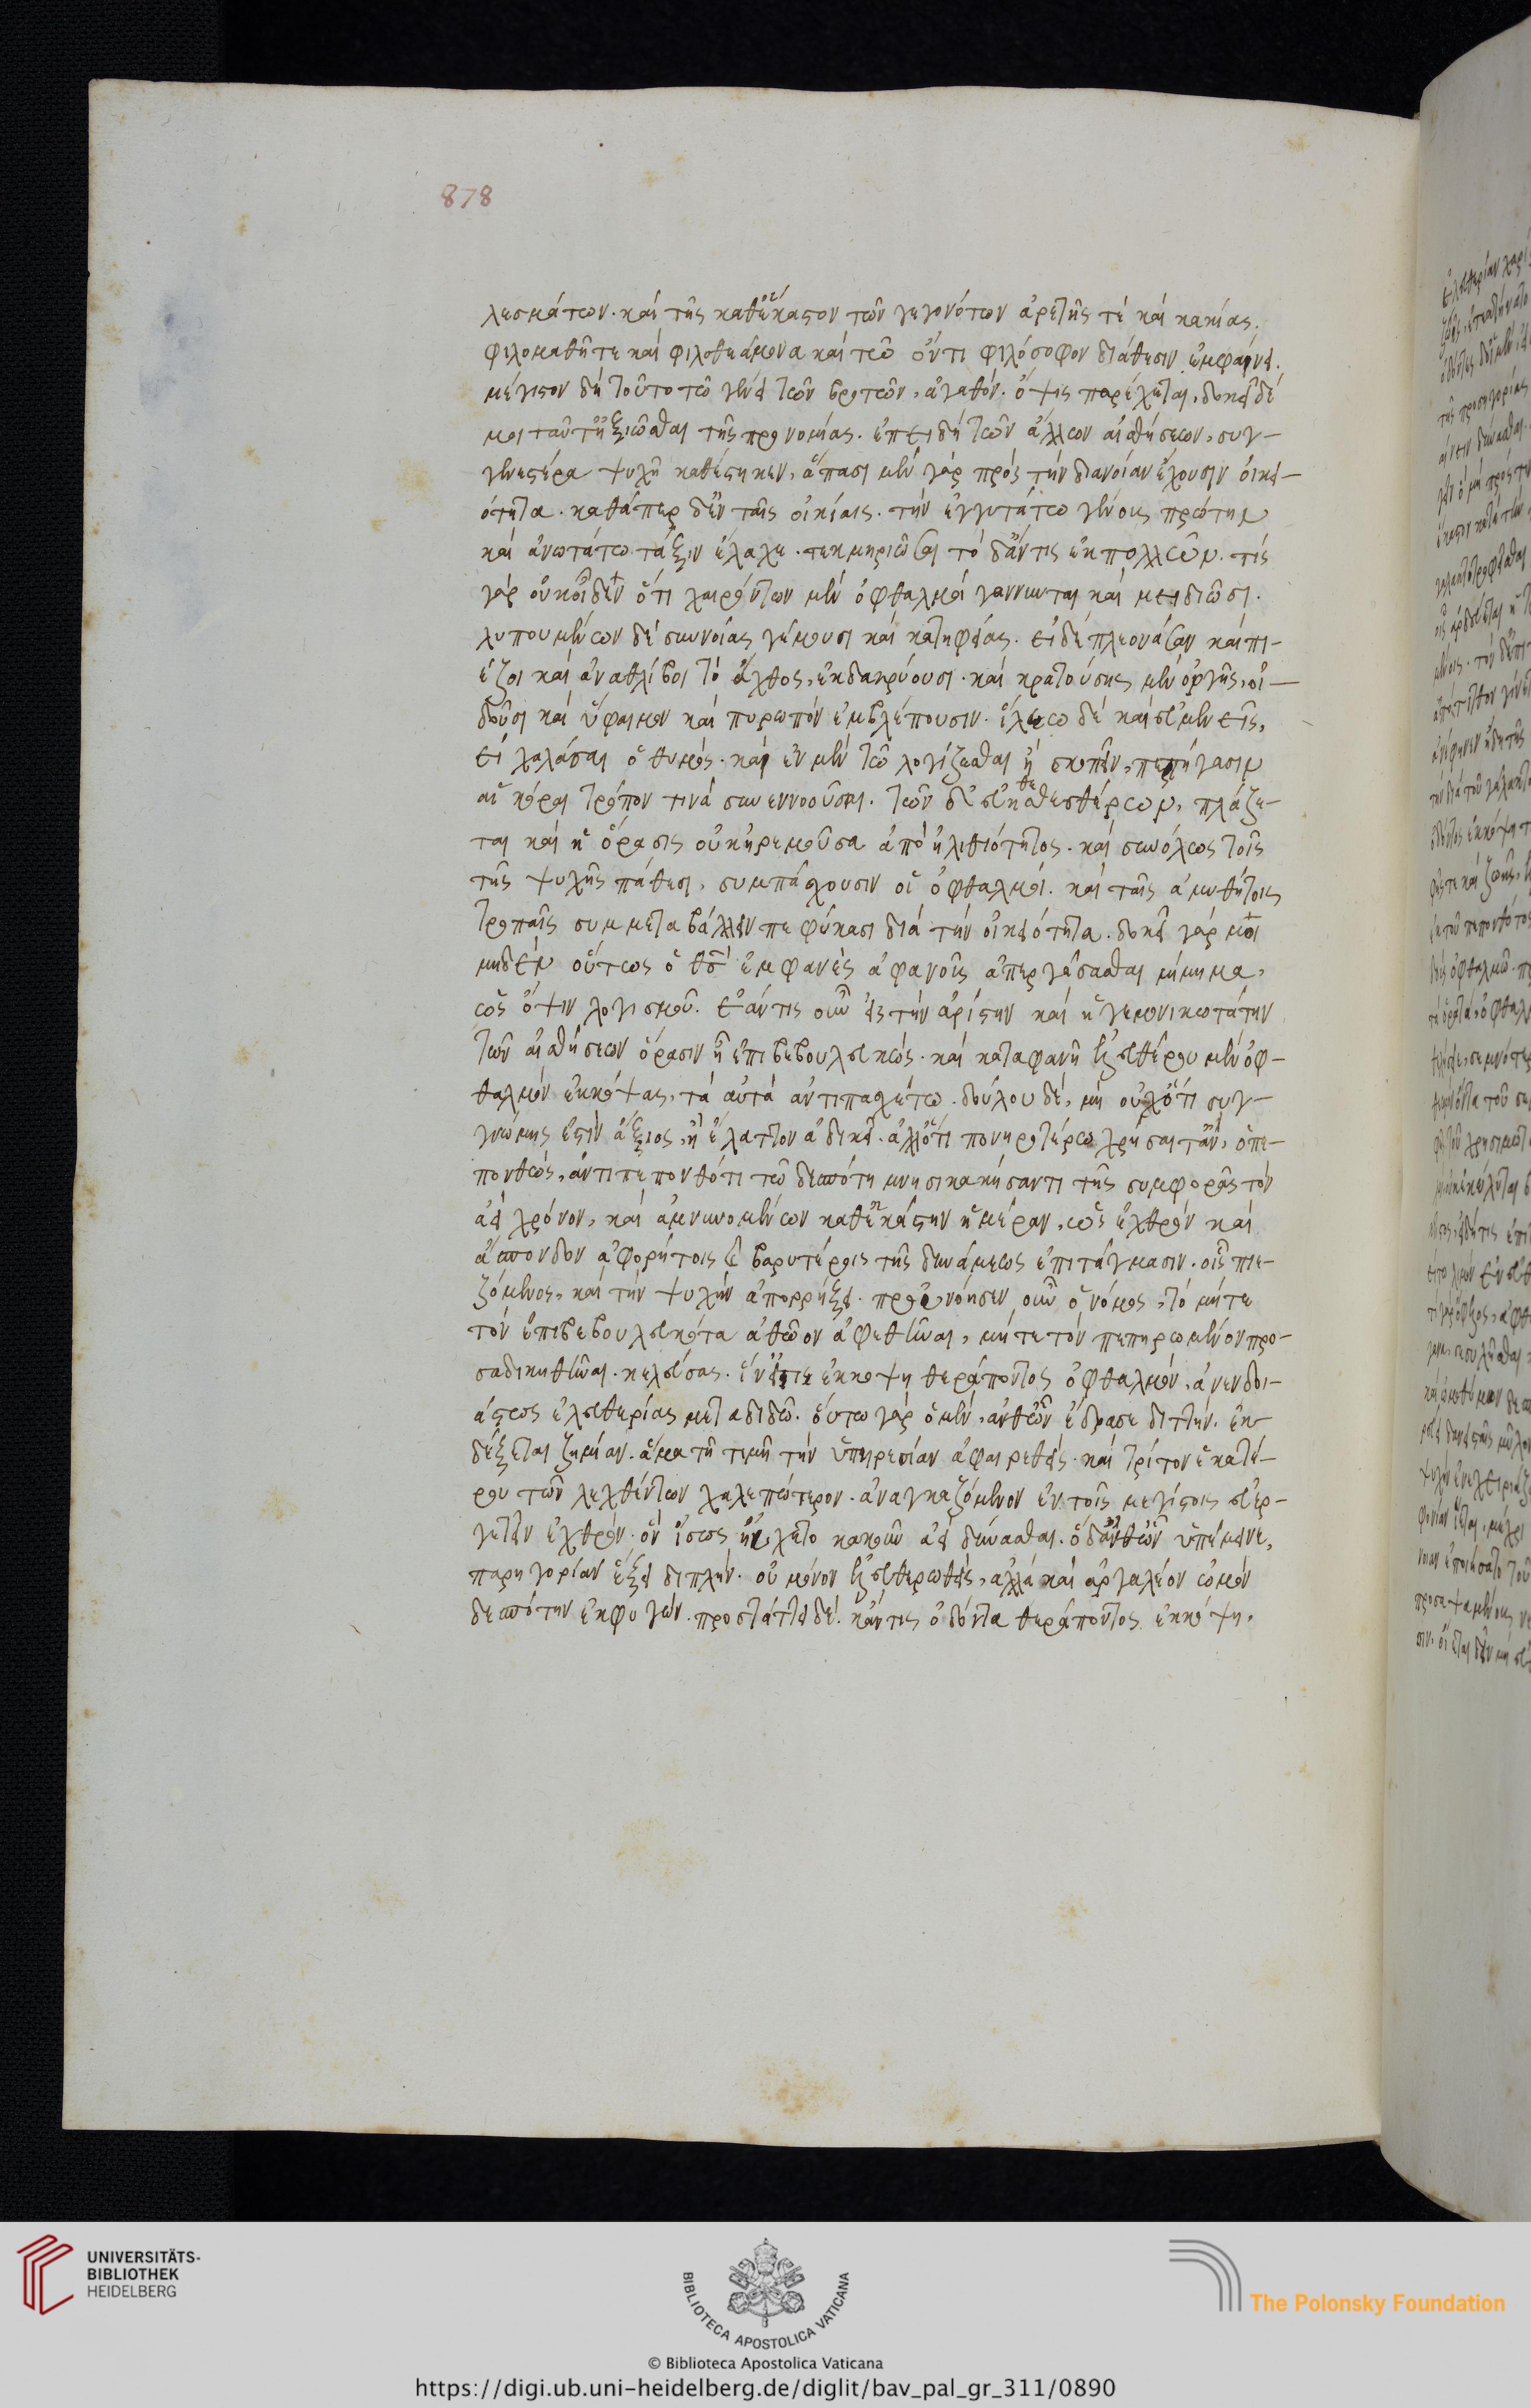 878
λεσμάτων. καὶ τῆς καθ' ἕκαστον τῶν γεγονότων ἀρετῆς τὲ καὶ κακίας.
φιλομαθῆ τε καὶ φιλοθεάμονα καὶ τῶ ὄντι φιλόσοφον διάθεσιν ἐμφαίνει.
μέγιστον δὴ τοῦτο τῶ γένει τῶν βροτῶν, ἀγαθόν. ὄψις παρέχεται, δοκεῖ δέ
μοι ταύτη ἠξιῶσθαι τῆς προνομίας. ἐπειδὴ τῶν ἄλλων αἰσθήσεων, συγ-
γενεστέρα ψυχῆ καθέστηκεν, ἅπασαι μὲν γὰρ πρὸς τὴν διανοίαν ἔχουσιν οἰκει-
ότητα. καθάπερ δ' ἐν ταῖς οἰκίαις. τὴν ἐγγυτάτω γένους πρώτην
καὶ ἀνωτάτω τάξιν ἔλαχε. τεκμηριῶσαι τὸ δ' ἄν τις ἐκ πολλῶν. τίς
γὰρ οὐκ οἶδεν ὅτι χαιρόντων μὲν ὀφθαλμοὶ γάννυνται καὶ μειδιῶσι.
λυπουμένων δὲ συννοίας γέμουσι καὶ κατηφείας. εἰ δὲ πλεονάσαν καὶ πι-
έζοι καὶ ἀναθλίβοι τὸ ἄχθος, ἐκδακρύουσι. καὶ κρατούσης μὲν ὀργῆς, οἰ-
δοῦσι καὶ ὕφαιμον καὶ πυρωπὸν ἐμβλέπουσιν. ἵλεω δὲ καὶ εὐμενεῖς,
εἰ χαλάσαι ὁ θυμός. καὶ ἐν μὲν τῶ λογίζεσθαι ἢ σκοπεῖν, πεπήγασιν
αἱ κόραι τρόπον τινὰ συνεννοοῦσαι. τῶν δ' εὐηθεστέρων, πλάζε-
ται καὶ ἡ ὅρασις οὐκ ἠρεμοῦσα ἀπὸ ἠλιθιότητος. καὶ συνόλως τοῖς
τῆς ψυχῆς πάθεσι, συμπάσχουσιν οἱ ὀφθαλμοί. καὶ ταῖς ἀμυθήτοις
τροπαῖς συμμεταβάλλειν πεφύκασι διὰ τὴν οἰκειότητα. δοκεῖ γάρ μοι
μηδὲν οὕτως ὁ θς ἐμφανὲς ἀφανοῦς ἀπεργάσασθαι μίμημα,
ὡς ὄψιν λογισμοῦ. ἐάν τις οὖν εἰς τὴν ἀρίστην καὶ ἡγεμονικωτάτην
τῶν αἰσθήσεων ὅρασιν ἦ ἐπιβεβουλευκώς. καὶ καταφανῆ ἐξ ἐλευθέρου μὲν ὀφ-
θαλμὸν ἐκκόψας, τὰ αὐτὰ ἀντιπασχέτω. δούλου δὲ, μὴ οὐχ ὅτι συγ-
γνώμης ἐστὶν ἄξιος, ἢ ἔλαττον ἀδικεῖ. ἀλλ' ὅτι πονηροτέρω χρήσαιτ' ἂν, ὁ πε-
πονθὼς, ἀντιπεπονθότι τῶ δεσπότη μνησικακήσαντι τῆς συμφορᾶς τὸν
ἀεὶ χρόνον, καὶ ἀμυνομένων καθ' ἑκάστην ἡμέραν, ὡς ἐχθρὸν καὶ
ἄσπονδον ἀφορήτοις καὶ βαρυτέροις τῆς δυνάμεως ἐπιτάγμασιν. οἷς πιε-
ζόμενος, καὶ τὴν ψυχὴν ἀπορρήξει. προὐνόησεν οὖν ὁ νόμος, τὸ μήτε
τὸν ἐπιβεβουλευκότα ἀθῶον ἀφεθῆναι, μήτε τὸν πεπηρωμένον προ-
σαδικηθῆναι. κελεύσας. ἐὰν τις ἐκκόψη θεράποντος ὀφθαλμὸν, ἀνενδοι-
άστως ἐλευθερίας μεταδιδῶ. οὕτω γὰρ ὁ μὲν, ἀνθ' ὧν ἔδρασε διττὴν. ἐν-
δέξεται ζημίαν. ἅμα τῆ τιμῆ τὴν ὑπηρεσίαν ἀφαιρεθείς. καὶ τρίτον ἑκατέ-
ρου τῶν λεχθέντων χαλεπώτερον. ἀναγκαζόμενον ἐν τοῖς μεγίστοις εὐερ-
γετεῖν ἐχθρόν. ὃν ἴσως ηὔχετο κακοῦν ἀεὶ δύνασθαι. ὁ δ' ἀνθ' ὧν ὑπέμεινε,
παρηγορίαν ἕξει διπλήν. οὐ μόνον ἐξελευθερωθεὶς, ἀλλὰ καὶ ἀργαλέον ὠμὸν
δεσπότην ἐκφυγών. προστάττει δὲ. κἄν τις ὀδόντα θεράποντος ἐκκόψη.
UNIVERSITÄTS-
BIBLIOTHEK
HEIDELBERG
BIBLIOTECA APOSTOLICA VATICANA
The Polonsky Foundation
© Biblioteca Apostolica Vaticana
https://digi.ub.uni-heidelberg.de/diglit/bav_pal_gr_311/0890